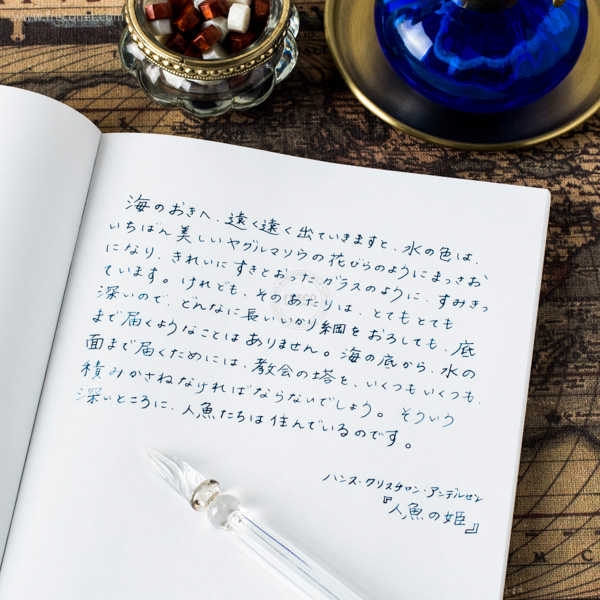 www.trecouter.com
海のおきへ、遠く遠く出ていきますと、水の色は、
いちばん美しいヤグルマソウの花びらのようにまっさお
になり、きれいにすきとおったガラスのように、すみきっ
ています。けれども、そのあたりは、とてもとても
深いので、どんなに長いいかり綱をおろしても、底
まで届くようなことはありません。海の底から、水の
面まで届くためには、教会の塔を、いくつもいくつも、
積みかさねなければならないでしょう。そういう
深いところに、人魚たちは住んでいるのです。
ハンス・クリスチャン・アンデルセン
『人魚の姫』